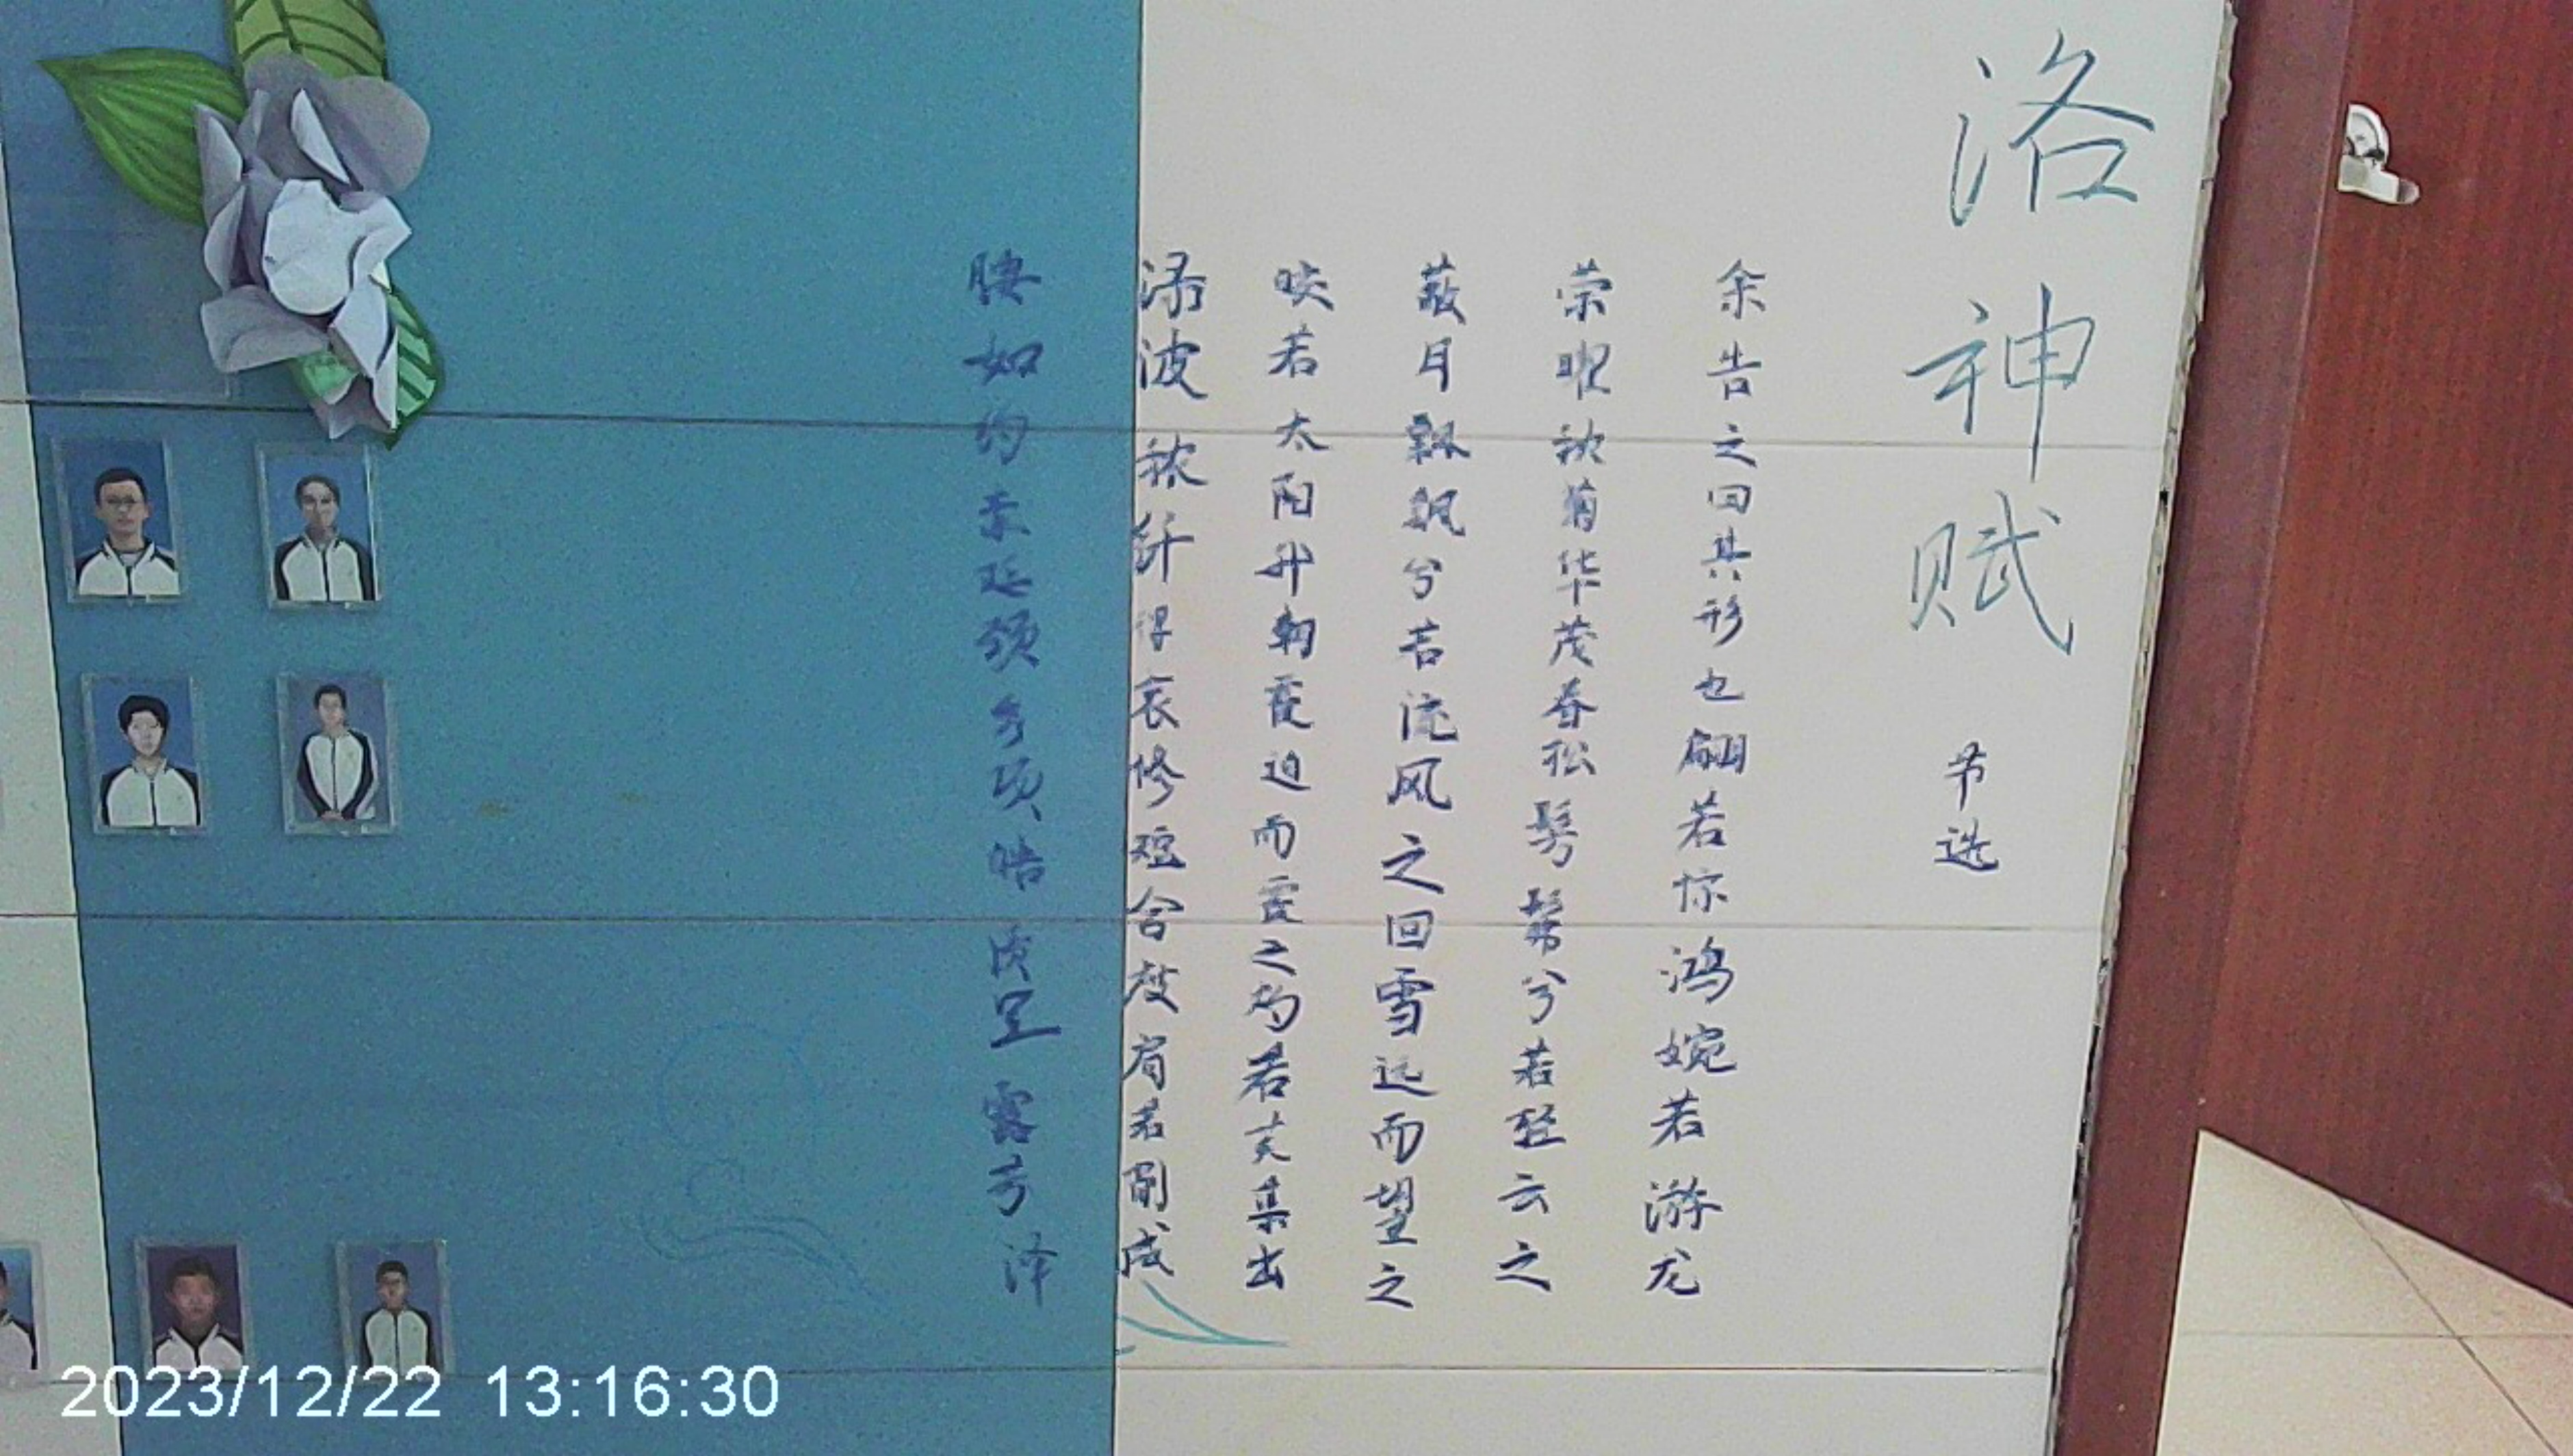 洛神赋 节选
余告之曰其形也翩若惊鸿婉若游龙
荣曜秋菊华茂春松髣髴兮若轻云之
蔽月飘飖兮若流风之回雪远而望之
皎若太阳升朝霞迫而察之灼若芙蕖出
渌波秾纤得衷修短合度肩若削成
腰如约素延颈秀项皓质呈露芳泽
2023/12/22 13:16:30